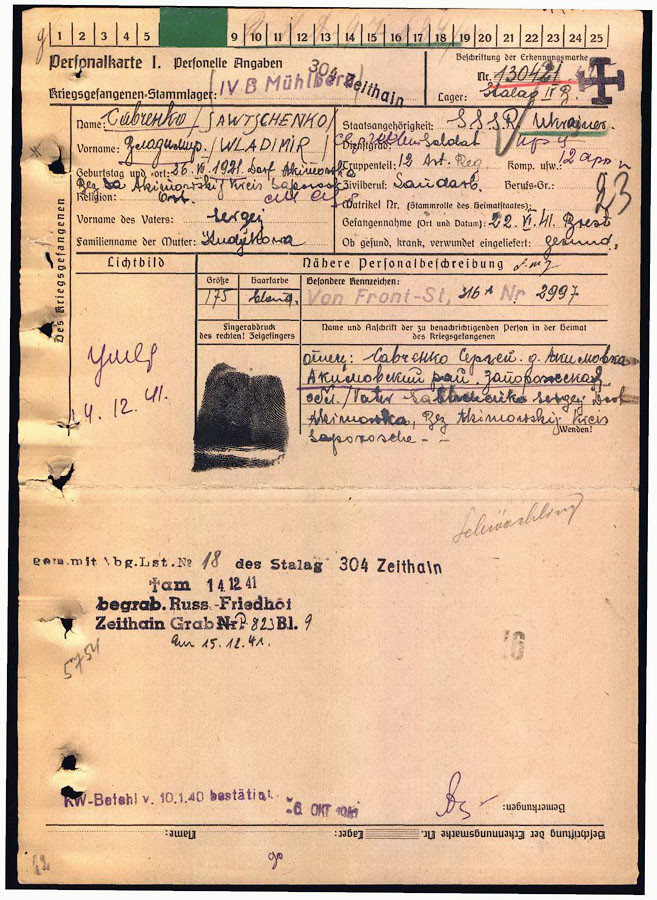 1 2 3 4 5 9 10 11 12 13 14 15 16 17 18 19 20 21 22 23 24 25
Personalkarte I. Personelle Angaben
Beschriftung der Erkennungsmarke
Nr. 130421
Kriegsgefangenen-Stammlager: IV B Mühlberg 304 Zeithain
Lager: Stalag IV B.
Des Kriegsgefangenen
Name: Савченко / SAWTSCHENKO /
Vorname: Владимир. / WLADIMIR /
Geburtstag und -ort: 26. VI. 1921. Dorf Akimowka
Bez Akimowskij Kreis Saporosche
Religion: Ort.
Vorname des Vaters: Sergej
Familienname der Mutter: Kudykowa
Staatsangehörigkeit: S.S.S.R. Ukrainer.
Dienstgrad: Soldat
Truppenteil: 12 Art. Reg Komp. usw.:
Zivilberuf: Berufs-Gr.:
Matrikel Nr. (Stammrolle des Heimatstaates):
Gefangennahme (Ort und Datum): 22. VI. 41. Brest
Ob gesund, krank, verwundet eingeliefert: gesund.
23
Lichtbild
Nähere Personalbeschreibung
Größe Haarfarbe
175 blond.
Besondere Kennzeichen:
Von Front-St. 316 A Nr 2997
Fingerabdruck
des rechten! Zeigefingers
Name und Anschrift der zu benachrichtigenden Person in der Heimat
des Kriegsgefangenen
отец: Савченко Сергей. д. Акимовка
Акимовский рай. Запорожская
обл. / Vater Sergej Dorf
Akimowka, Bez Akimowskij Kreis
Saporosche - -
Wenden!
умер
14. 12. 41.
Schwächling
gem. mit Abg.Lst.№ 18 des Stalag 304 Zeithain
†am 14 12 41
begrab. Russ.-Friedhof
Zeithain Grab Nr. 823 Bl. 9
am 15. 12. 41.
5754
16
KW-Befehl v. 10.1.40 bestätigt
-6. OKT 1941
Bemerkungen:
Beschriftung der Erkennungsmarke Nr. Lager: Name: